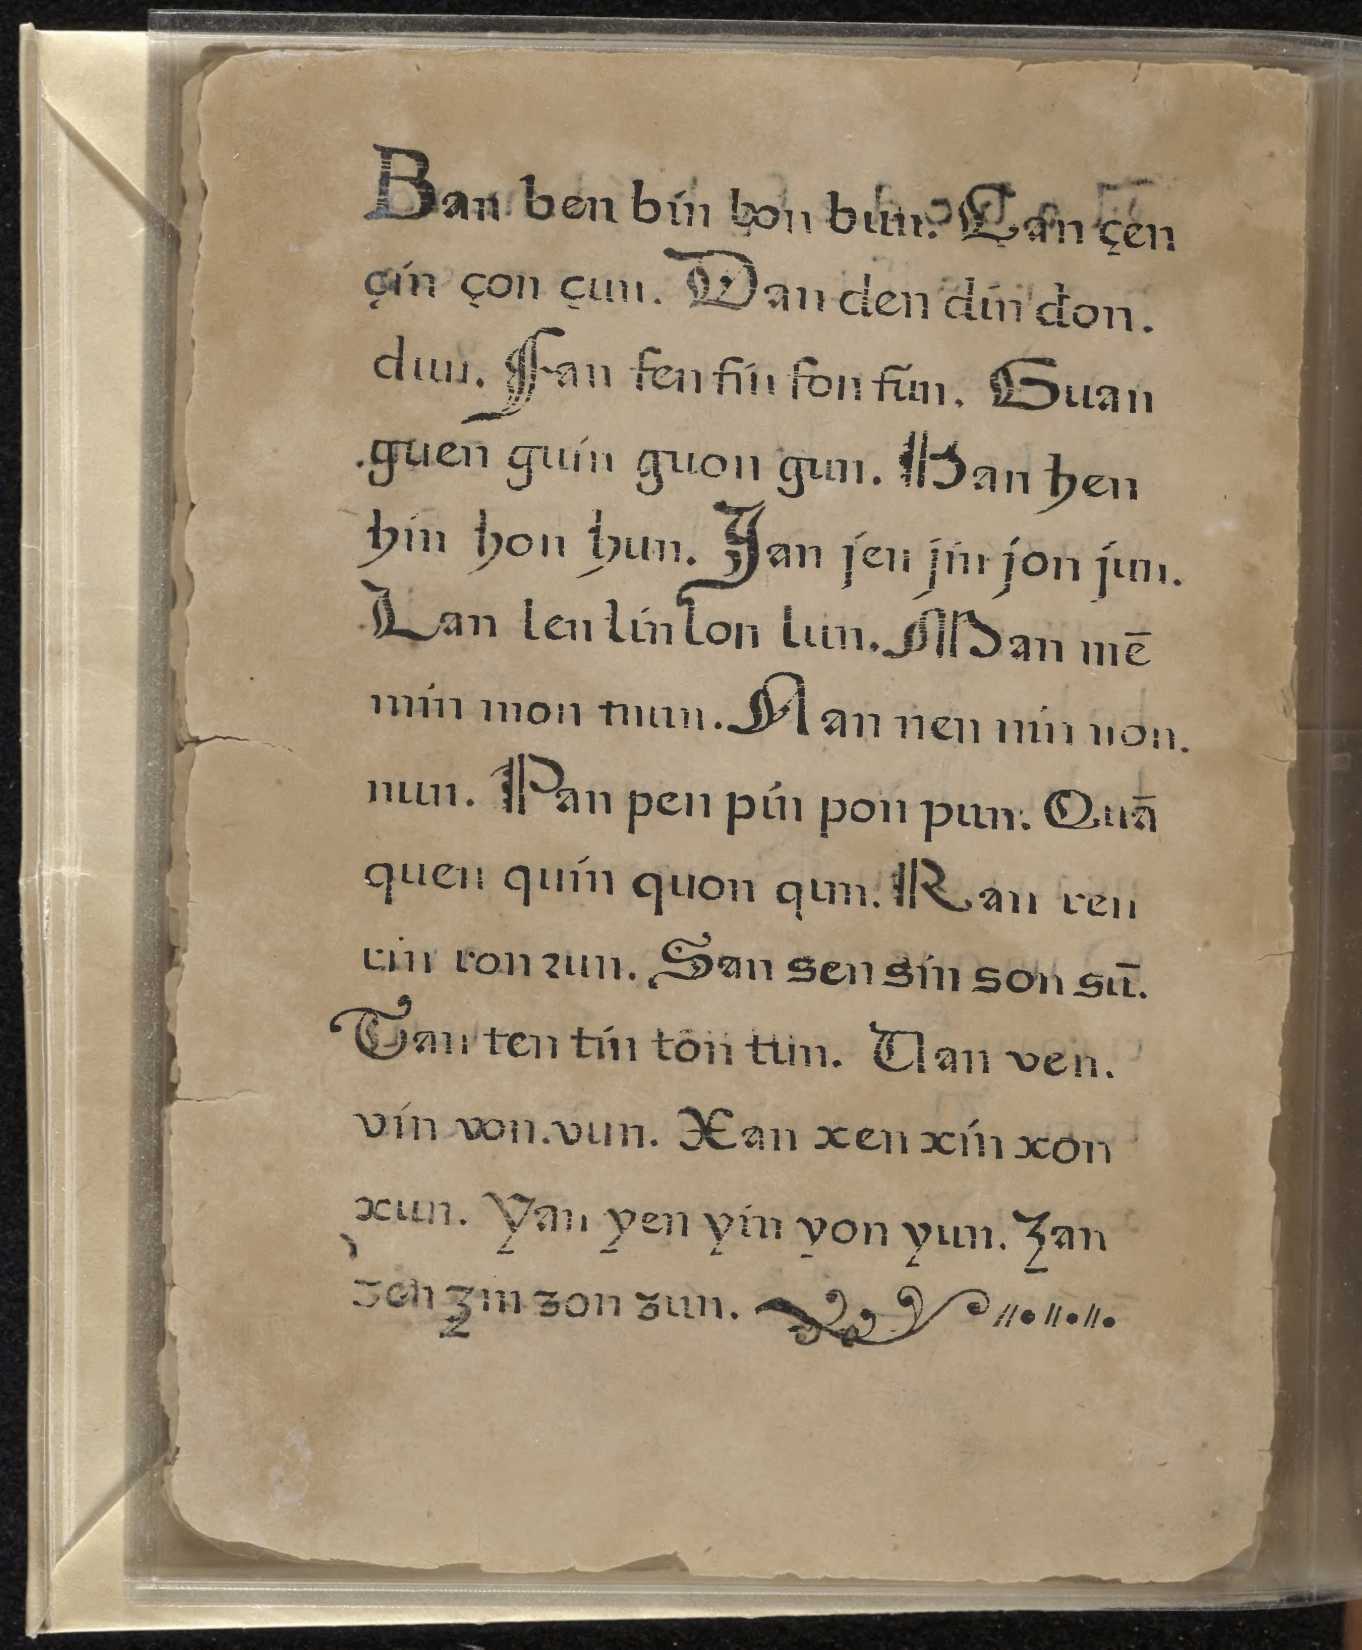 Ban ben bin bon bun. Can çen
çin çon çun. Dan den din don.
dun. Fan fen fin fon fun. Guan
guen guin guon gun. Han hen
hin hon hun. Jan jen jin jon jun.
Lan len lin lon lun. Man mē
min mon mun. Nan nen nin non.
nun. Pan pen pin pon pun. Quā
quen quin quon qun. Ran ren
rin ron run. San sen sin son sū.
Tan ten tin ton tun. Van ven.
vin von. vun. Xan xen xin xon
xun. Yan yen yin yon yun. Zan
zen zin zon zun.